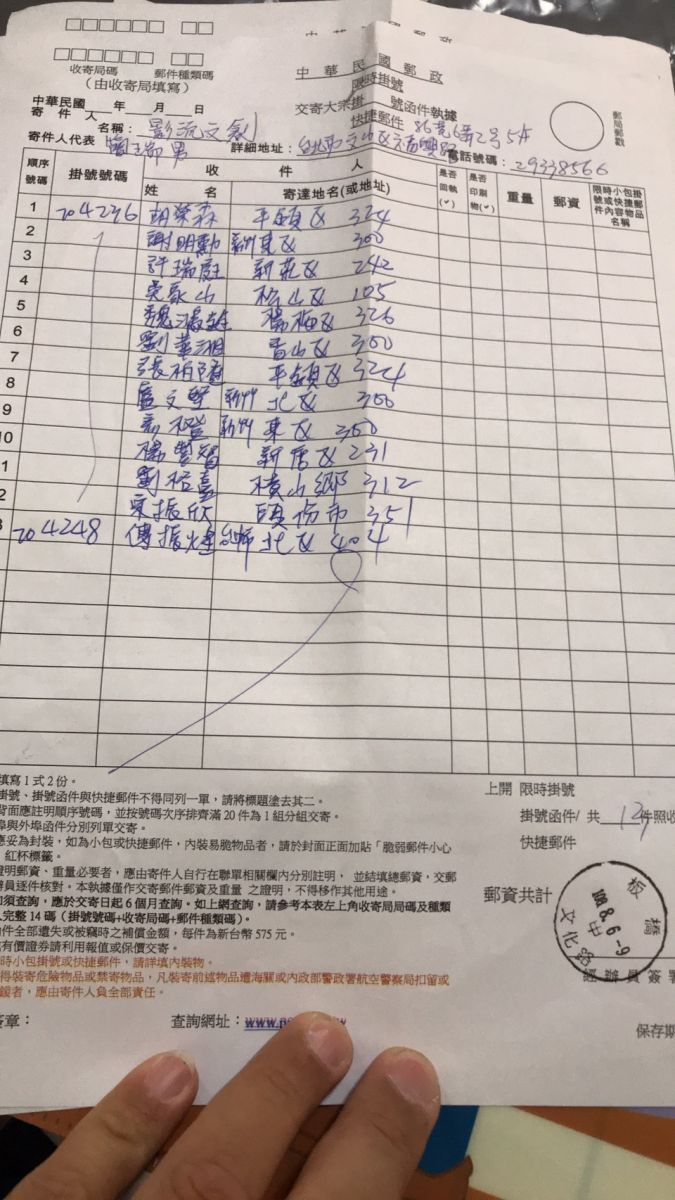 中華民國郵政
限時掛號
交寄大宗掛 號函件執據
快捷郵件
收寄局碼 郵件種類碼
(由收寄局填寫)
郵局郵戳
中華民國 年 月 日
寄件人
名稱:影流文創
寄件人代表
詳細地址:
86巷6弄2号5F
電話號碼:29338566
順序號碼 掛號號碼 收件人 姓名 寄達地名(或地址) 是否回執(✓) 是否印刷物(✓) 重量 郵資 限時小包掛號或快捷郵件內容物品名稱
1 204236 胡榮森 平鎮區 324
2 謝明勳 新竹東區 300
3 許瑞庭 新莊區 242
4 松山區 105
5 楊梅區 326
6 劉華湘 香山區 300
7 平鎮區 324
8 盧文堅 新竹北區 300
9 新竹東區 300
10 楊豐智 新店區 231
1 橫山鄉 312
2 振欣 頭份市 351
3 204248 傅振煌 台中市北區 404
填寫1式2份。
掛號、掛號函件與快捷郵件不得同列一單,請將標題塗去其二。
背面應註明順序號碼,並按號碼次序排齊滿20件為1組分組交寄。
埠與外埠函件分別列單交寄。
應妥為封裝,如為小包或快捷郵件,內裝易脆物品者,請於封面正面加貼「脆弱郵件小心
紅杯標籤。
證明郵資、重量必要者,應由寄件人自行在聯單相關欄內分別註明, 並結填總郵資,交郵
辦員逐件核對。本執據僅作交寄郵件郵資及重量 之證明,不得移作其他用途。
如須查詢,應於交寄日起6個月查詢。如上網查詢,請參考本表左上角收寄局局碼及種類
入完整14碼(掛號號碼+收寄局碼+郵件種類碼)。
件全部遺失或被竊時之補償金額,每件為新台幣575元。
有價證券請利用報值或保價交寄。
時小包掛號或快捷郵件,請詳填內裝物。
得裝寄危險物品或禁寄物品,凡裝寄前述物品遭海關或內政部警政署航空警察局扣留或
者,應由寄件人負全部責任。
上開 限時掛號
掛號函件/ 共 件照收
快捷郵件
郵資共計
板橋
108.8.6-9
中
文化路
經辦員簽署
簽章:
查詢網址:www.
保存期